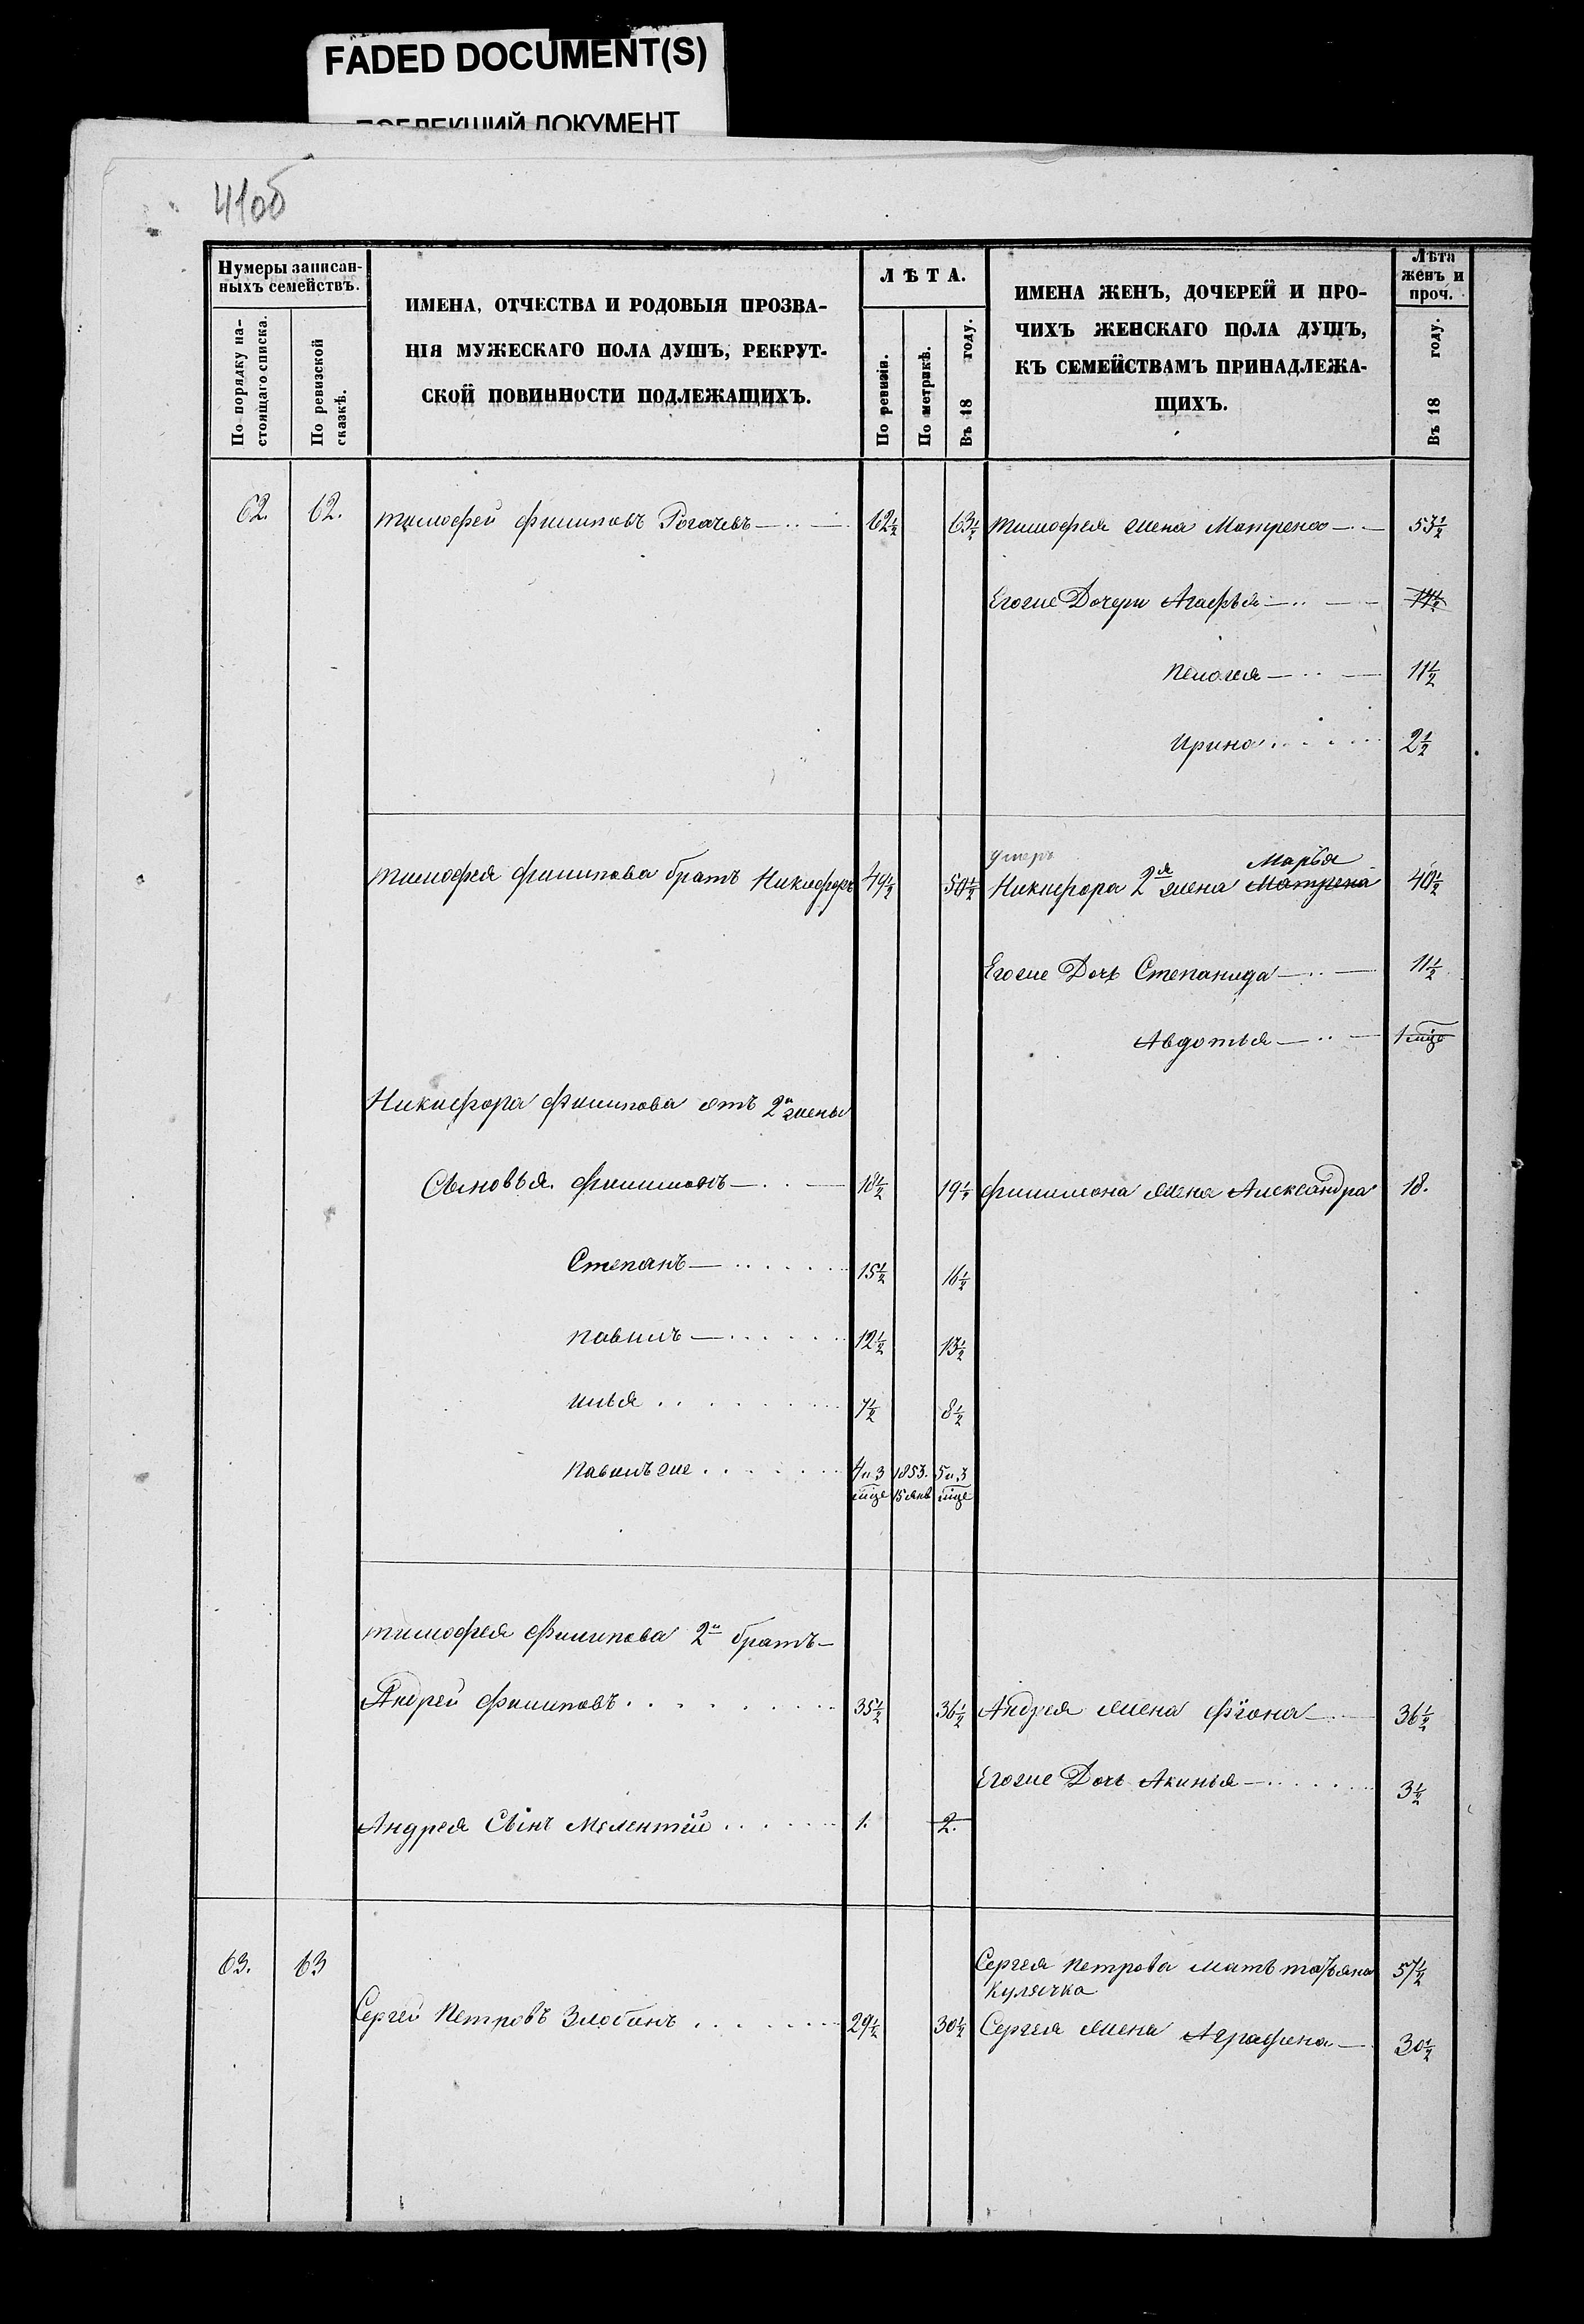 FADED DOCUMENT(S)
ПОБЛЕКШИЙ ДОКУМЕНТ
41об
Нумеры записан-
ныхъ семействъ.
По порядку на-
стоящаго списка.
По ревизской
сказкѣ.
ИМЕНА, ОТЧЕСТВА И РОДОВЫЯ ПРОЗВА-
НІЯ МУЖЕСКАГО ПОЛА ДУШЪ, РЕКРУТ-
СКОЙ ПОВИННОСТИ ПОДЛЕЖАЩИХЪ.
ЛѢТА.
По ревизіи.
По метрикѣ.
Въ 18 году.
ИМЕНА ЖЕНЪ, ДОЧЕРЕЙ И ПРО-
ЧИХЪ ЖЕНСКАГО ПОЛА ДУШЪ,
КЪ СЕМЕЙСТВАМЪ ПРИНАДЛЕЖА-
ЩИХЪ.
Лѣта
женъ и
проч.
Въ 18 году.
62. 62. Тимофей Филиповъ Рогачевъ 62½ 63½ Тимофея жена Матрена 53½
Егоже Дочери Агафья 14½
Пелогея 11½
Ирина 2½
умеръ
Марья
Тимофея Филипова братъ Никифоръ 49½ 50½ Никифора 2я жена Матрена 40½
Егоже Дочь Степанида 11½
Авдотья 1 мѣсе
Никифора Филипова отъ 2й жены
Сыновья Филимонъ 18½ 19½ Филимона жена Александра 18.
Степанъ 15½ 16½
Павилъ 12½ 13½
Илья 7½ 8½
Павилъ же 4 и 3 мѣсе 1853. 15 янв 5 и 3 мѣсе
Тимофея Филипова 2й братъ
Андрей Филиповъ 35½ 36½ Андрея жена Фіона 36½
Егоже Дочь Акинья 3½
Андрея Сынъ Мелентій 1. 2.
63. 63 Сергея Петрова мать татьяна 57½
Кулячка
Сергей Петровъ Злобинъ 29½ 30½ Сергея жена Аграфена 30½